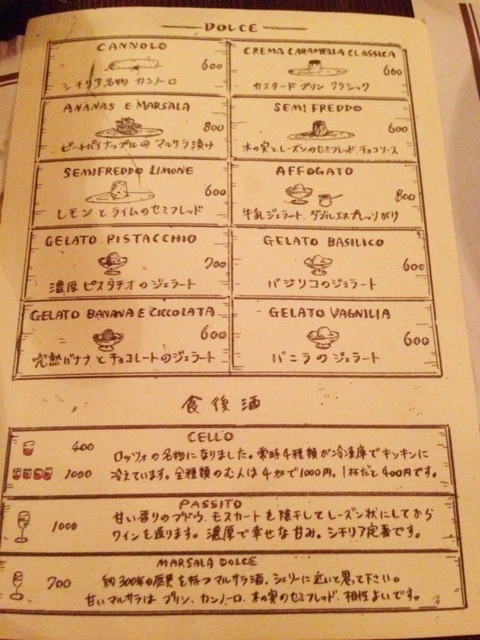 DOLCE
CANNOLO
600
シチリア名物 カンノーロ
CREMA CARAMELLA CLASSICA
600
カスタード プリン クラシック
ANANAS E MARSALA
800
ピーチパイナップルの マルサラ漬け
SEMIFREDDO
600
木の実とレーズンのセミフレッド、チョコソース
SEMIFREDDO LIMONE
600
レモンとライムのセミフレッド
AFFOGATO
800
牛乳ジェラート、ダブルエスプレッソがけ
GELATO PISTACCHIO
700
濃厚ピスタチオのジェラート
GELATO BASILICO
600
バジリコのジェラート
GELATO BANANA E CICCOLATA
600
完熟バナナとチョコレートのジェラート
GELATO VAGNILIA
600
バニラのジェラート
食後酒
CELLO
400 ロッツォの名物になりました。常時4種類が冷凍庫でキンキンに
1000 冷えています。全種類のむ人は4杯で1000円。1杯だと400円です。
PASSITO
甘い香りのブドウ、モスカートを陰干してレーズン状にしてから
1000 ワインを造ります。濃厚で幸せな甘み。シチリア定番です。
MARSALA DOLCE
700 約300年の歴史を持つマルサラ酒。シェリーに近いと思って下さい。
甘いマルサラは プリン、カンノーロ、木の実のセミフレッド、相性よいです。